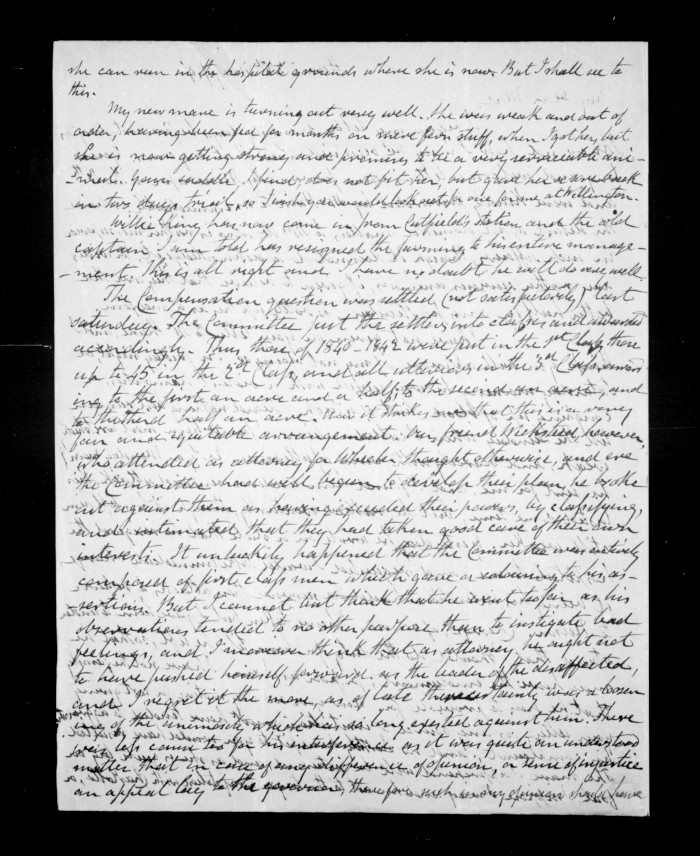 she can run in the hospital grounds where she is now. But I shall see to
this.
My new mare is turning out very well. She was weak and out of
order, having been fed for months on mere fern stuff, when I got her, but
she is now getting strong and promises to be a very serviceable ani-
-mal. Your saddle, I find, does not fit her, but gave her a sore back
in two days trial, so I wish you would look out for one for me at Wellington.
Willie King has now come in from Cutfield's station and the old
captain I am told has resigned the farming to his entire manage-
-ment. This is all right and I have no doubt he will do very well.
The Compensation question was settled (not satisfactorily) last
saturday. The Committee put the settlers into classes and awarded
accordingly. Thus those of 1840–1842 were put in the 1st Class, those
up to 45 in the 2d Class, and all others in the 3d Class, award-
ing to the first an acre and a half, to the second an acre, and
to the third half an acre. Now it strikes me that this is a very
fair and equitable arrangement. Our friend Wicksteed, however,
who attended as attorney for Wheeler thought otherwise, and ere
the Committee had well begun to develop their plan, he broke
out against them as having exceeded their powers, by classifying,
and intimated that they had taken good care of their own
interests. It unluckily happened that the Committee was entirely
composed of first class men which gave a colouring to his as-
-sertions. But I cannot but think that he went too far as his
observations tended to no other purpose than to instigate bad
feelings, and I moreover think that as attorney he ought not
to have pushed himself forward as the leader of the disaffected,
and I regret it the more, as of late there was a loosen
ing of the animosity which has so long existed against him. There
was less cause too for his interference as it was quite an understood
matter that in case of any difference of opinion, or sense of injustice
an appeal lay to the governor, therefore such in my opinion should have